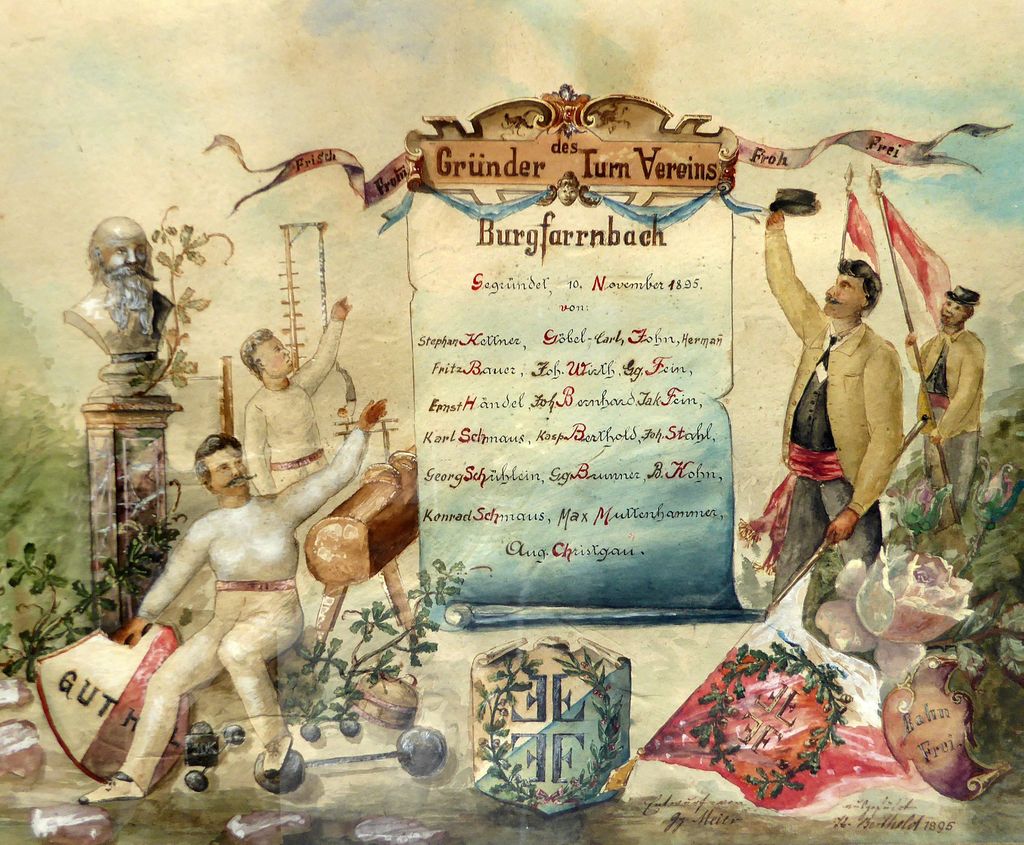 Frisch
Fromm
Froh
Frei
Gründer des Turn Vereins
Burgfarrnbach
Gegründet, 10. November 1895.
von:
Stephan Kellner, Göbel-Carl, John, Hermañ
Fritz Bauer, Joh. Wirth, Gg. Fein,
Ernst Händel, Joh. Bernhard, Jak Fein,
Karl Schmaus, Kasp Berthold, Joh. Stahl,
Georg Schühlein, Gg. Brunner, B. Kohn,
Konrad Schmaus, Max Muttenhammer,
Aug. Christgau.
GUT H
F F
F F
F F
F F
Jahn
Frei.
Entwurf von
Gg. Meier
ausgeführt
K. Berthold 1895